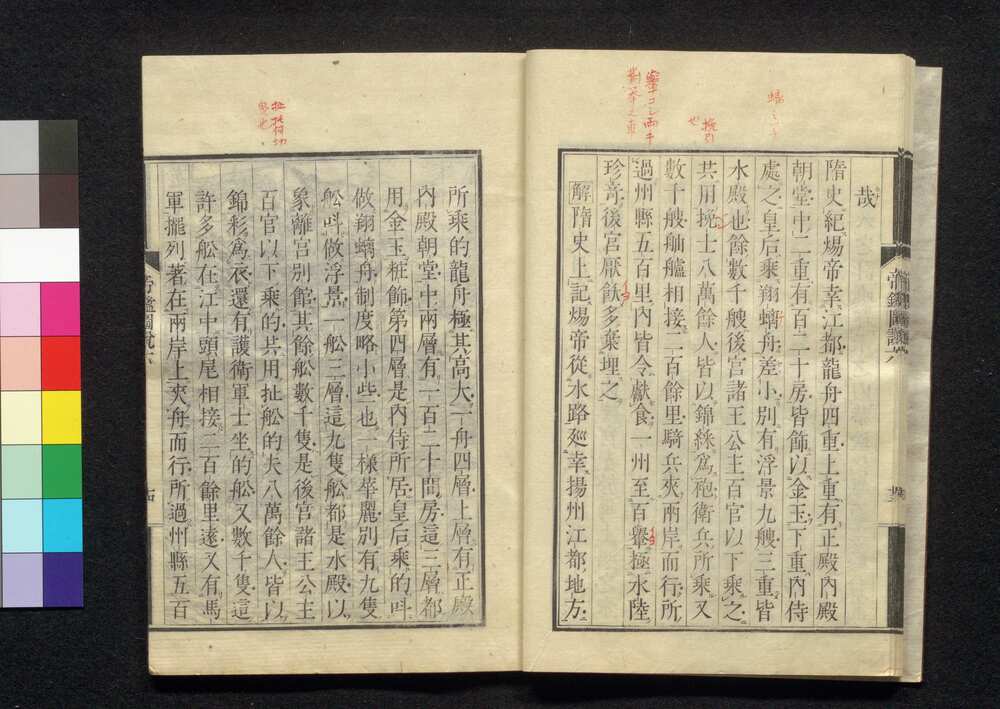 哉
隋史紀煬帝幸江都龍舟四重上重有正殿內殿
朝堂中二重有百二十房皆飾以金玉下重內侍
處之皇后乘翔螭舟差小別有浮景九艘三重皆
水殿也餘數千艘後宮諸王公主百官以下乘之
共用挽士八萬餘人皆以錦綵爲袍衛兵所乘又
數十艘舳艫相接二百餘里騎兵夾兩岸而行所
過州縣五百里內皆令獻食一州至百轝極水陸
珍奇後宮厭飫多棄埋之
解隋史上記煬帝從水路廵幸揚州江都地方
所乘的龍舟極其高大一舟四層上層有正殿
內殿朝堂中兩層有一百二十間房這三層都
用金玉粧飾第四層是內侍所居皇后乘的呌
做翔螭舟制度略小些也一樣華麗別有九隻
船呌做浮景一船三層這九隻船都是水殿以
象離宮別館其餘船數千隻是後宮諸王公主
百官以下乘的共用扯船的夫八萬餘人皆以
錦彩爲衣還有護衛軍士坐的船又數千隻這
許多船在江中頭尾相接二百餘里遠又有馬
軍擺列著在兩岸上夾舟而行所過州縣五百